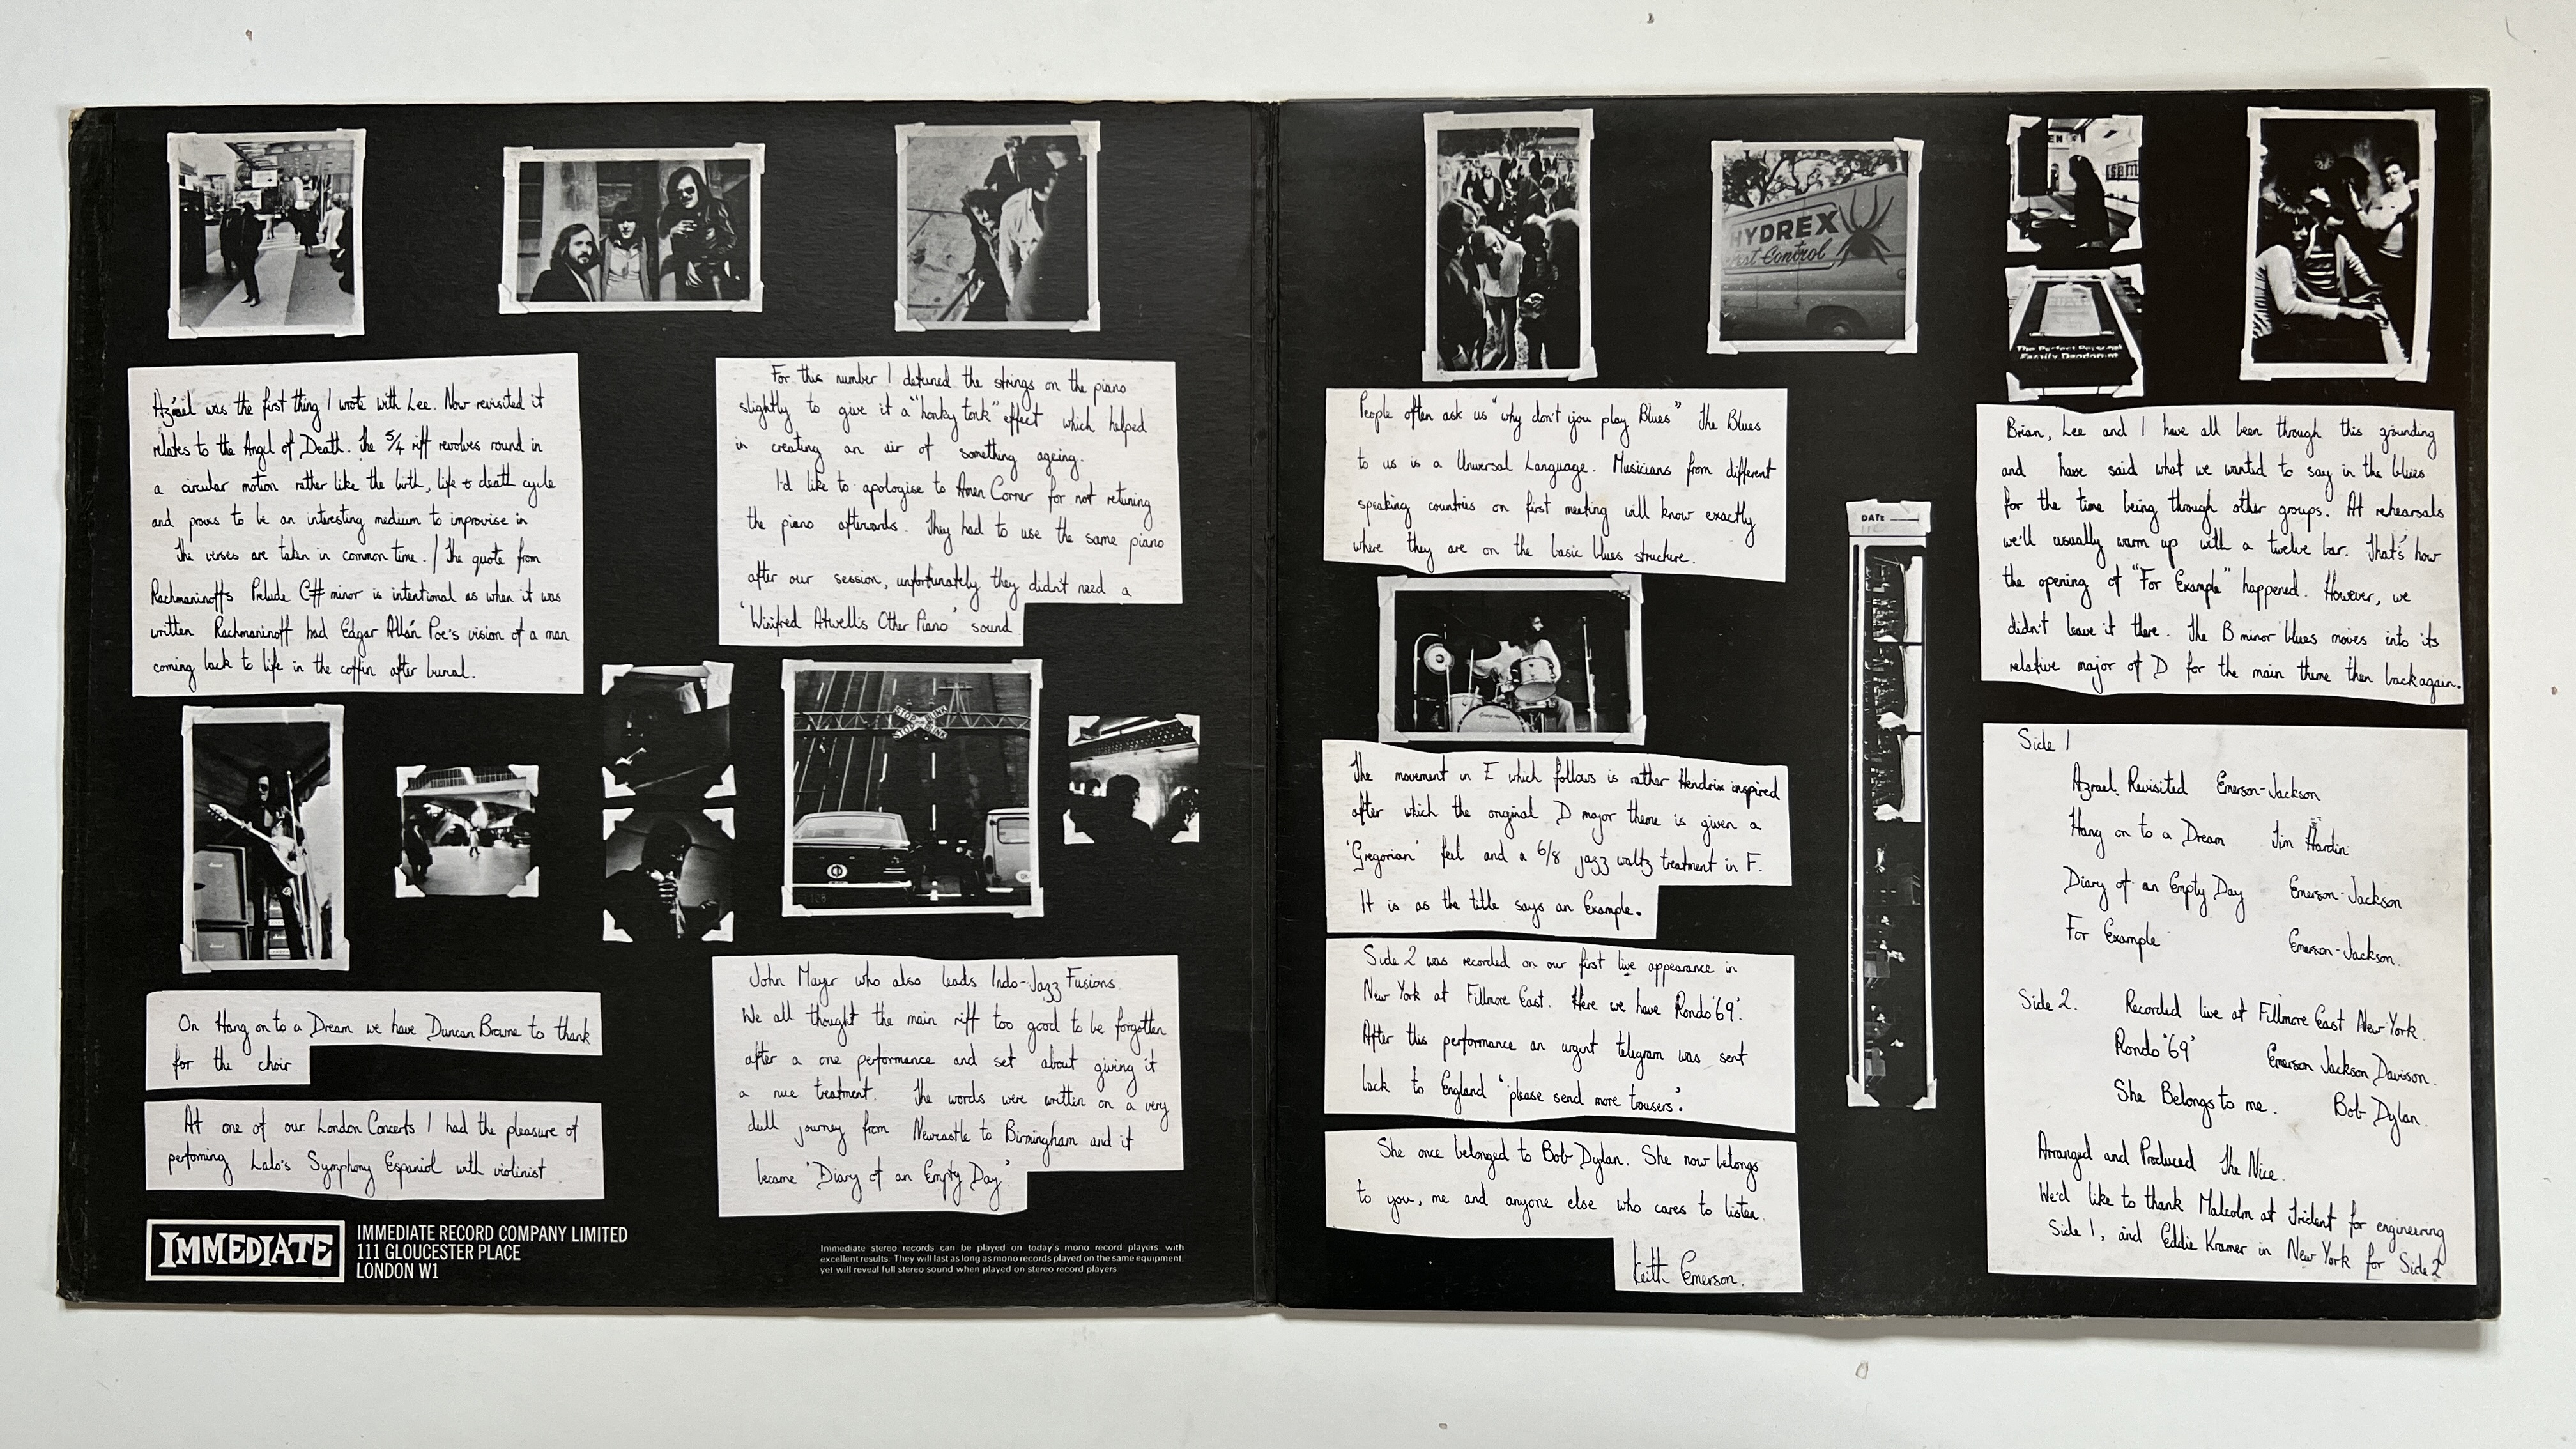 Azrael was the first thing I wrote with Lee. Now revisited it
relates to the Angel of Death. The 5/4 riff revolves round in
a circular motion rather like the birth, life & death cycle
and proves to be an interesting medium to improvise in
The verses are taken in common time. / The quote from
Rachmaninoffs Prelude C# minor is intentional as when it was
written Rachmaninoff had Edgar Allan Poe's vision of a man
coming back to life in the coffin after burial.
For this number I detuned the strings on the piano
slightly to give it a "honky tonk" effect which helped
in creating an air of something ageing.
I'd like to apologise to Amen Corner for not retuning
the piano afterwards. They had to use the same piano
after our session, unfortunately they didn't need a
'Winifred Atwell's Other Piano' sound
STOP ON BLINK
STOP ON BLINK
On Hang on to a Dream we have Duncan Browne to thank
for the choir
At one of our London Concerts I had the pleasure of
performing Lalo's Symphony Espaniol with violinist
John Mayer who also leads Indo-Jazz Fusions.
We all thought the main riff too good to be forgotten
after a one performance and set about giving it
a nice treatment. The words were written on a very
dull journey from Newcastle to Birmingham and it
became 'Diary of an Empty Day'.
IMMEDIATE
IMMEDIATE RECORD COMPANY LIMITED
111 GLOUCESTER PLACE
LONDON W1
Immediate stereo records can be played on today's mono record players with
excellent results. They will last as long as mono records played on the same equipment,
yet will reveal full stereo sound when played on stereo record players
HYDREX
Pest Control
EN
The Perfect Personal
Family Deodorant
People often ask us "why don't you play Blues" The Blues
to us is a Universal Language. Musicians from different
speaking countries on first meeting will know exactly
where they are on the basic blues structure.
DATE
Brian, Lee and I have all been through this grounding
and have said what we wanted to say in the blues
for the time being through other groups. At rehearsals
we'll usually warm up with a twelve bar. That's how
the opening of "For Example" happened. However, we
didn't leave it there. The B minor blues moves into its
relative major of D for the main theme then back again.
The movement in E which follows is rather Hendrix inspired
after which the original D major theme is given a
'Gregorian' feel and a 6/8 jazz waltz treatment in F.
It is as the title says an Example.
Side 2 was recorded on our first live appearance in
New York at Fillmore East. Here we have Rondo '69'.
After this performance an urgent telegram was sent
back to England 'please send more trousers'.
She once belonged to Bob Dylan. She now belongs
to you, me and anyone else who cares to listen.
Keith Emerson.
Side 1
Azrael Revisited Emerson-Jackson
Hang on to a Dream Tim Hardin
Diary of an Empty Day Emerson-Jackson
For Example Emerson-Jackson.
Side 2. Recorded live at Fillmore East New York.
Rondo '69' Emerson Jackson Davison.
She Belongs to me. Bob Dylan.
Arranged and Produced The Nice.
We'd like to thank Malcolm at Trident for engineering
Side 1, and Eddie Kramer in New York for Side 2